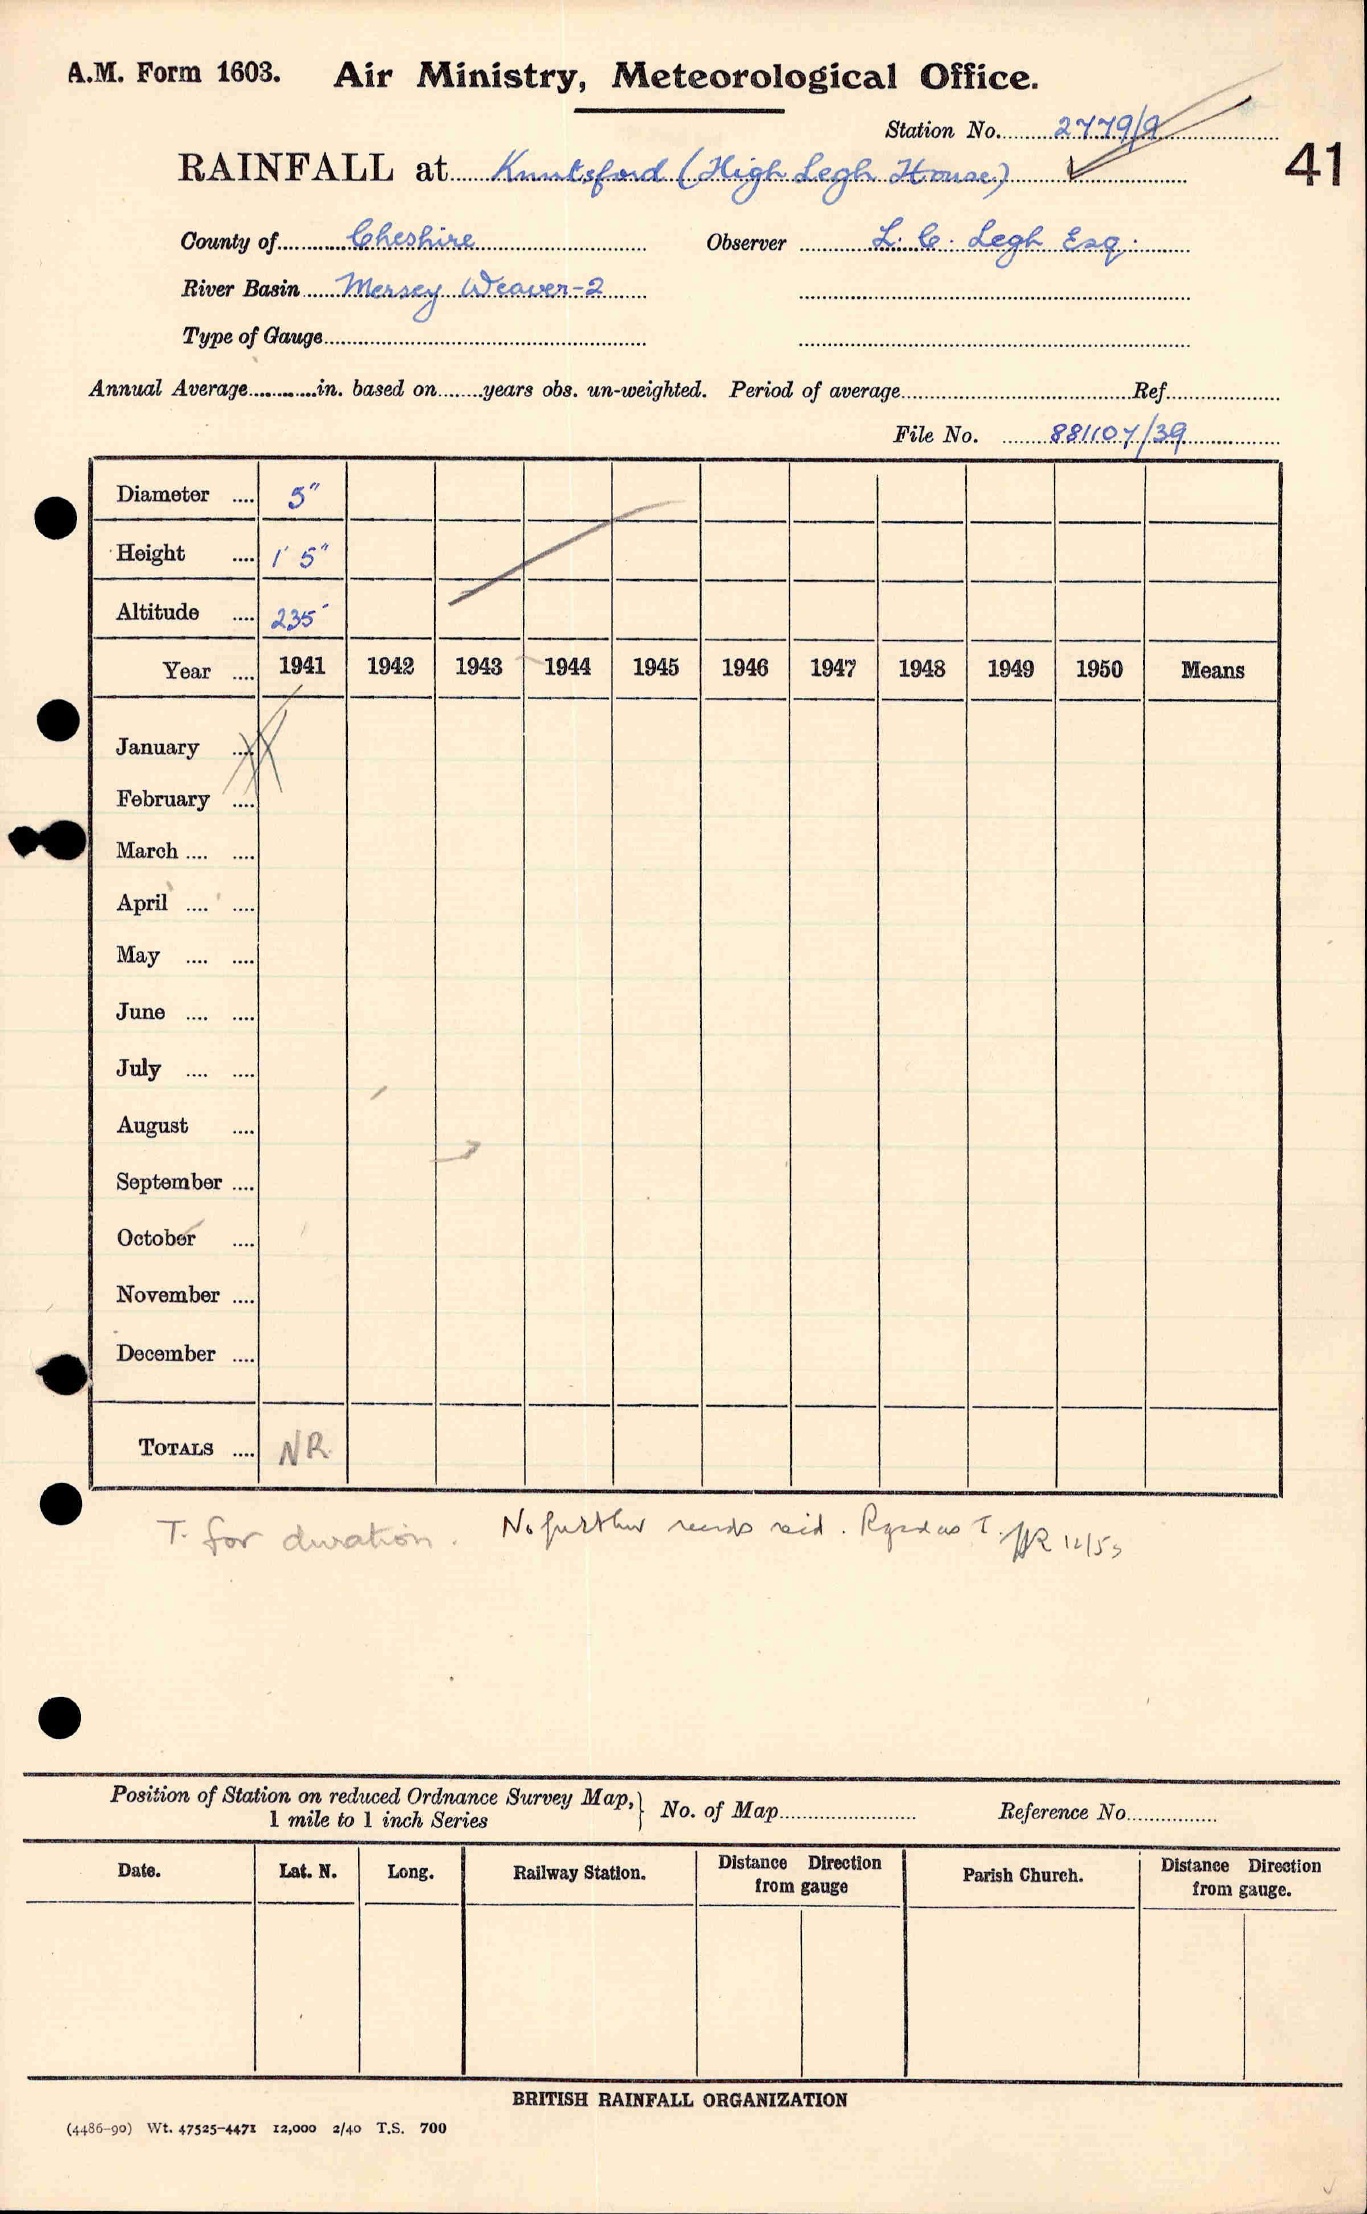 A.M. Form 1603. Air Ministry, Meteorological Office.
Station No. 2779/9
41
RAINFALL at Knutsford (High Legh House)
County of Cheshire Observer L. C. Legh Esq.
River Basin Mersey Weaver-2
Type of Gauge
Annual Average in. based on years obs. un-weighted. Period of average Ref.
File No. 881107/39
Diameter .... 5"
Height .... 1' 5"
Altitude .... 235'
Year .... 1941 1942 1943 1944 1945 1946 1947 1948 1949 1950 Means
January ....
February ....
March .... ....
April .... ....
May .... ....
June .... ....
July .... ....
August ....
September ....
October ....
November ....
December ....
TOTALS .... NR
T. for duration. No further records recd. as T.
Position of Station on reduced Ordnance Survey Map, } No. of Map Reference No.
1 mile to 1 inch Series
Date. Lat. N. Long. Railway Station. Distance Direction from gauge Parish Church. Distance Direction from gauge.
BRITISH RAINFALL ORGANIZATION
(4486-90) Wt. 47525-4471 12,000 2/40 T.S. 700